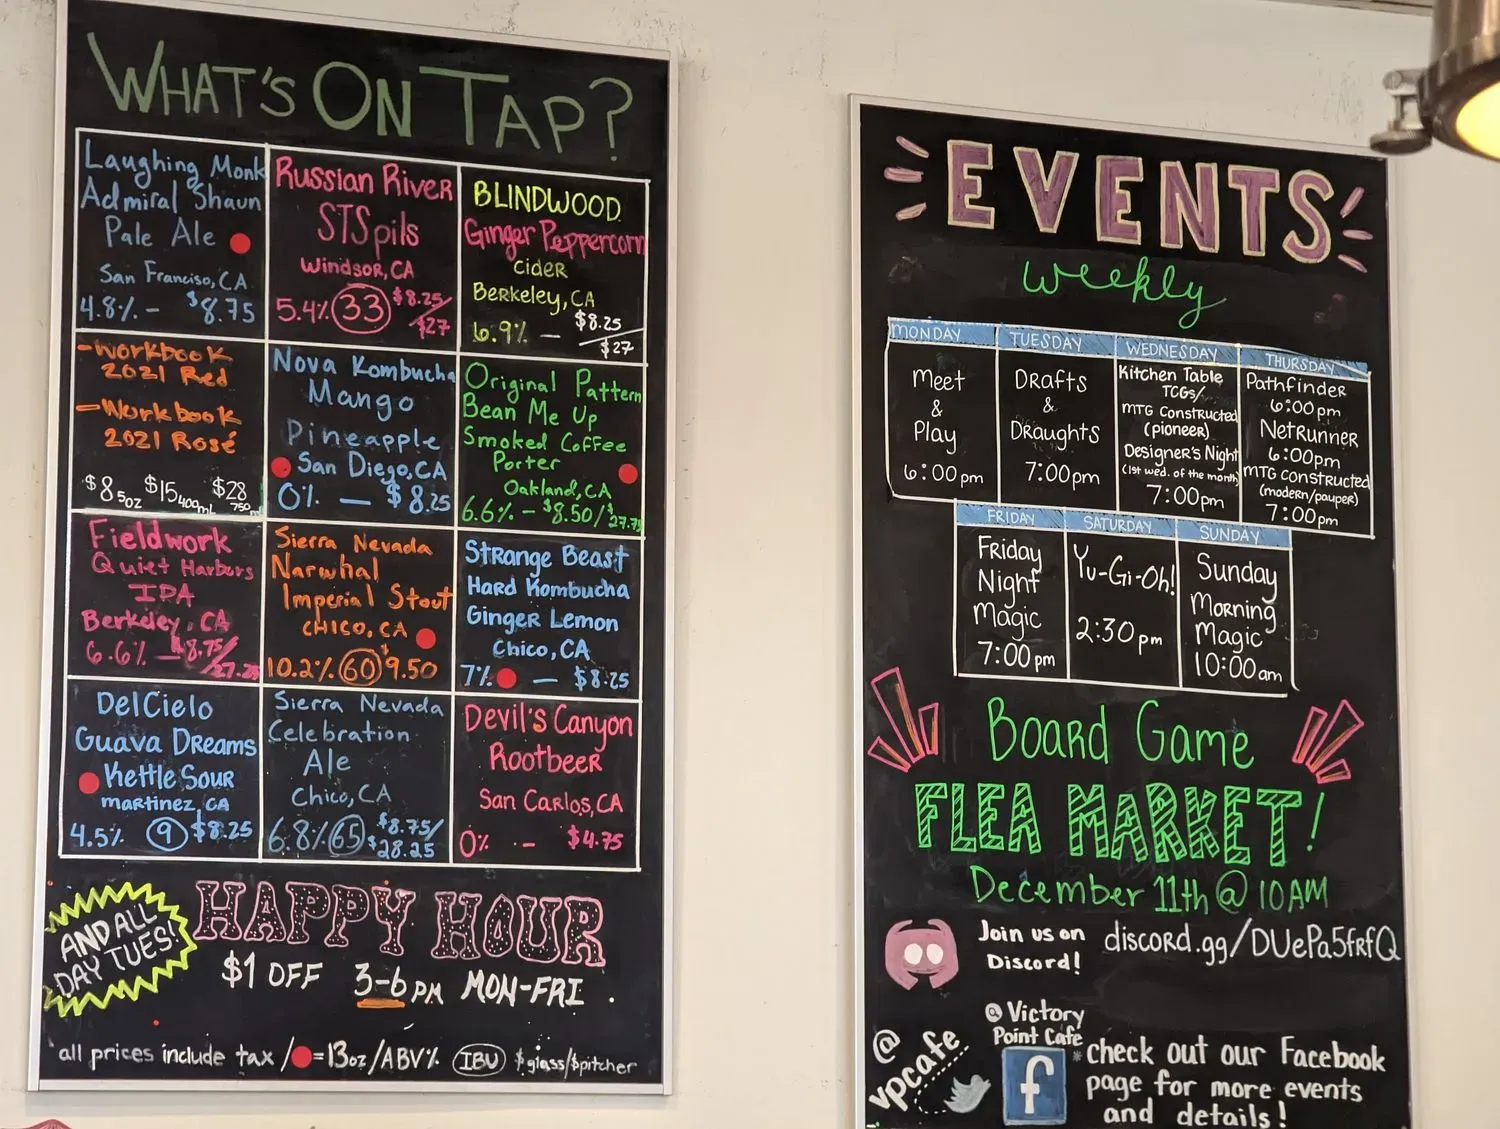 WHAT'S ON TAP?
Laughing Monk
Admiral Shaun
Pale Ale
San Franciso, CA
4.8% - $8.75
Russian River
STS pils
Windsor, CA
5.4% 33 $8.25/
$27
BLINDWOOD
Ginger Peppercorn
Cider
Berkeley, CA
6.9% — $8.25
/$27
-Workbook
2021 Red
-Workbook
2021 Rosé
$8 5oz $15 400mL $28 750mL
Nova Kombucha
Mango
Pineapple
San Diego, CA
0% — $8.25
Original Pattern
Bean Me Up
Smoked Coffee
Porter
Oakland, CA
6.6% - $8.50/$27.75
Fieldwork
Quiet Harbors
IPA
Berkeley, CA
6.6% — $8.75/
27.25
Sierra Nevada
Narwhal
Imperial Stout
CHICO, CA
10.2% 60 $9.50
Strange Beast
Hard Kombucha
Ginger Lemon
Chico, CA
7% — $8.25
DelCielo
Guava Dreams
Kettle Sour
martinez, CA
4.5% 9 $8.25
Sierra Nevada
Celebration
Ale
Chico, CA
6.8% 65 $8.75/
$28.25
Devil's Canyon
Rootbeer
San Carlos, CA
0% - $4.75
AND ALL
DAY TUES!
HAPPY HOUR
$1 OFF 3-6PM MON-FRI.
all prices include tax / = 13oz/ABV% IBU $glass/$pitcher
EVENTS
weekly
MONDAY
Meet
&
Play
6:00pm
TUESDAY
Drafts
&
Draughts
7:00pm
WEDNESDAY
Kitchen Table
TCGs/
MTG Constructed
(pioneer)
Designer's Night
(1st wed. of the month)
7:00pm
THURSDAY
Pathfinder
6:00pm
NetRunner
6:00pm
MTG constructed
(modern/pauper)
7:00pm
FRIDAY
Friday
Night
Magic
7:00pm
SATURDAY
Yu-Gi-Oh!
2:30pm
SUNDAY
Sunday
Morning
Magic
10:00am
Board Game
FLEA MARKET!
December 11th @ 10AM
Join us on
Discord!
discord.gg/DUePa5frfQ
@
vpcafe
Victory
Point Cafe
f
*check out our Facebook
page for more events
and details!